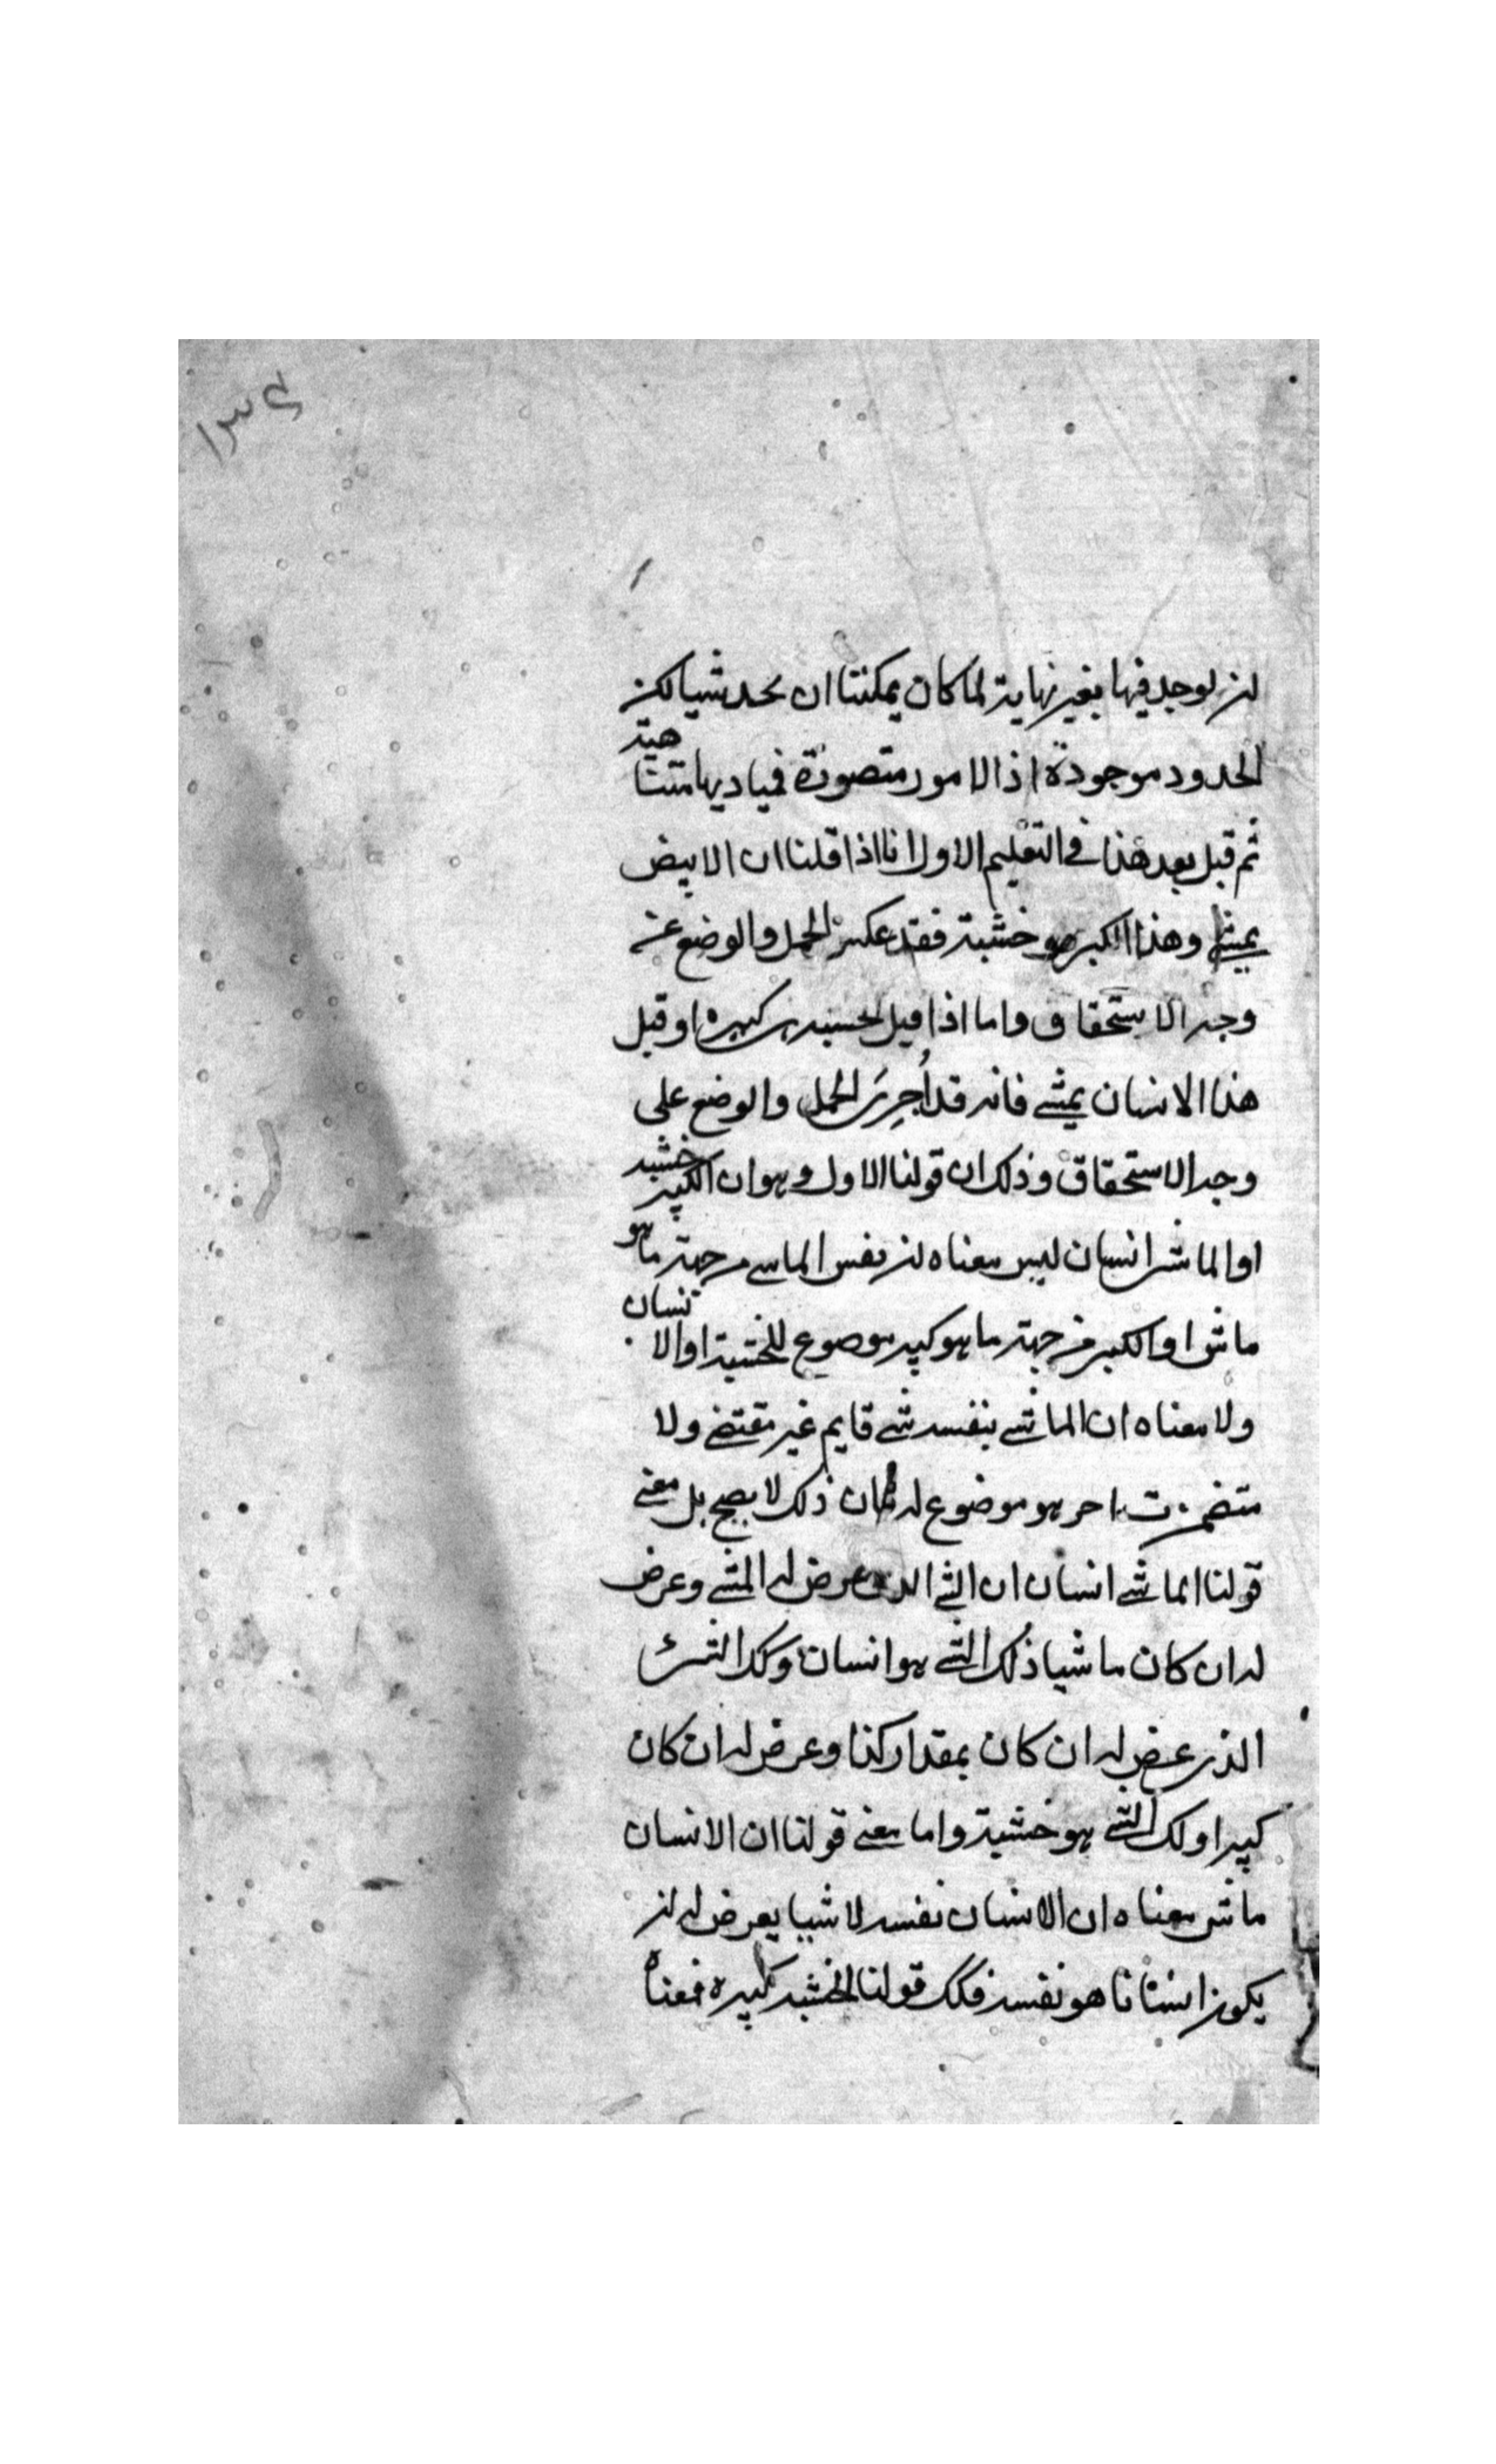 ١٣٤
ان يوجد فيها بغير نهاية لما كان يمكننا ان نحد شيا لكن
الحدود موجودة اذ الامور متصورة فمباديها متناهية
ثم قيل بعد هذا في التعليم الاول انا اذا قلنا ان الابيض
يمشي وهذا الكبير هو خشبة فقد عكس الحمل والوضع عن
وجه الاستحقاق واما اذا قيل الخشبة كبيرة او قيل
هذا الانسان يمشي فانه قد اُجرِيَ الحمل والوضع على
وجه الاستحقاق وذلك ان قولنا الاول وهو ان الكبير خشبة
او الماشي انسان ليس معناه ان نفس الماشي من جهة ما هو
ماش او الكبير من جهة ما هو كبير موضوع للخشبة او الانسان
ولا معناه ان الماشي بنفسه شي قايم غير مقتضي ولا
متضمن اخر هو موضوع له فان ذلك لا يصح بل معنى
قولنا الماشي انسان ان الشي الذي عرض له المشي وعرض
له ان كان ماشيا ذلك الشي هو انسان وكك الشي
الذي عرض له ان كان بمقدار كذا وعرض له ان كان
كبيرا ولك الشي هو خشبة واما معنى قولنا ان الانسان
ماش معناه ان الانسان نفسه لا شيا يعرض له ان
يكون انسانا هو نفسه فكك قولنا الخشبة كبيرة فمعناه